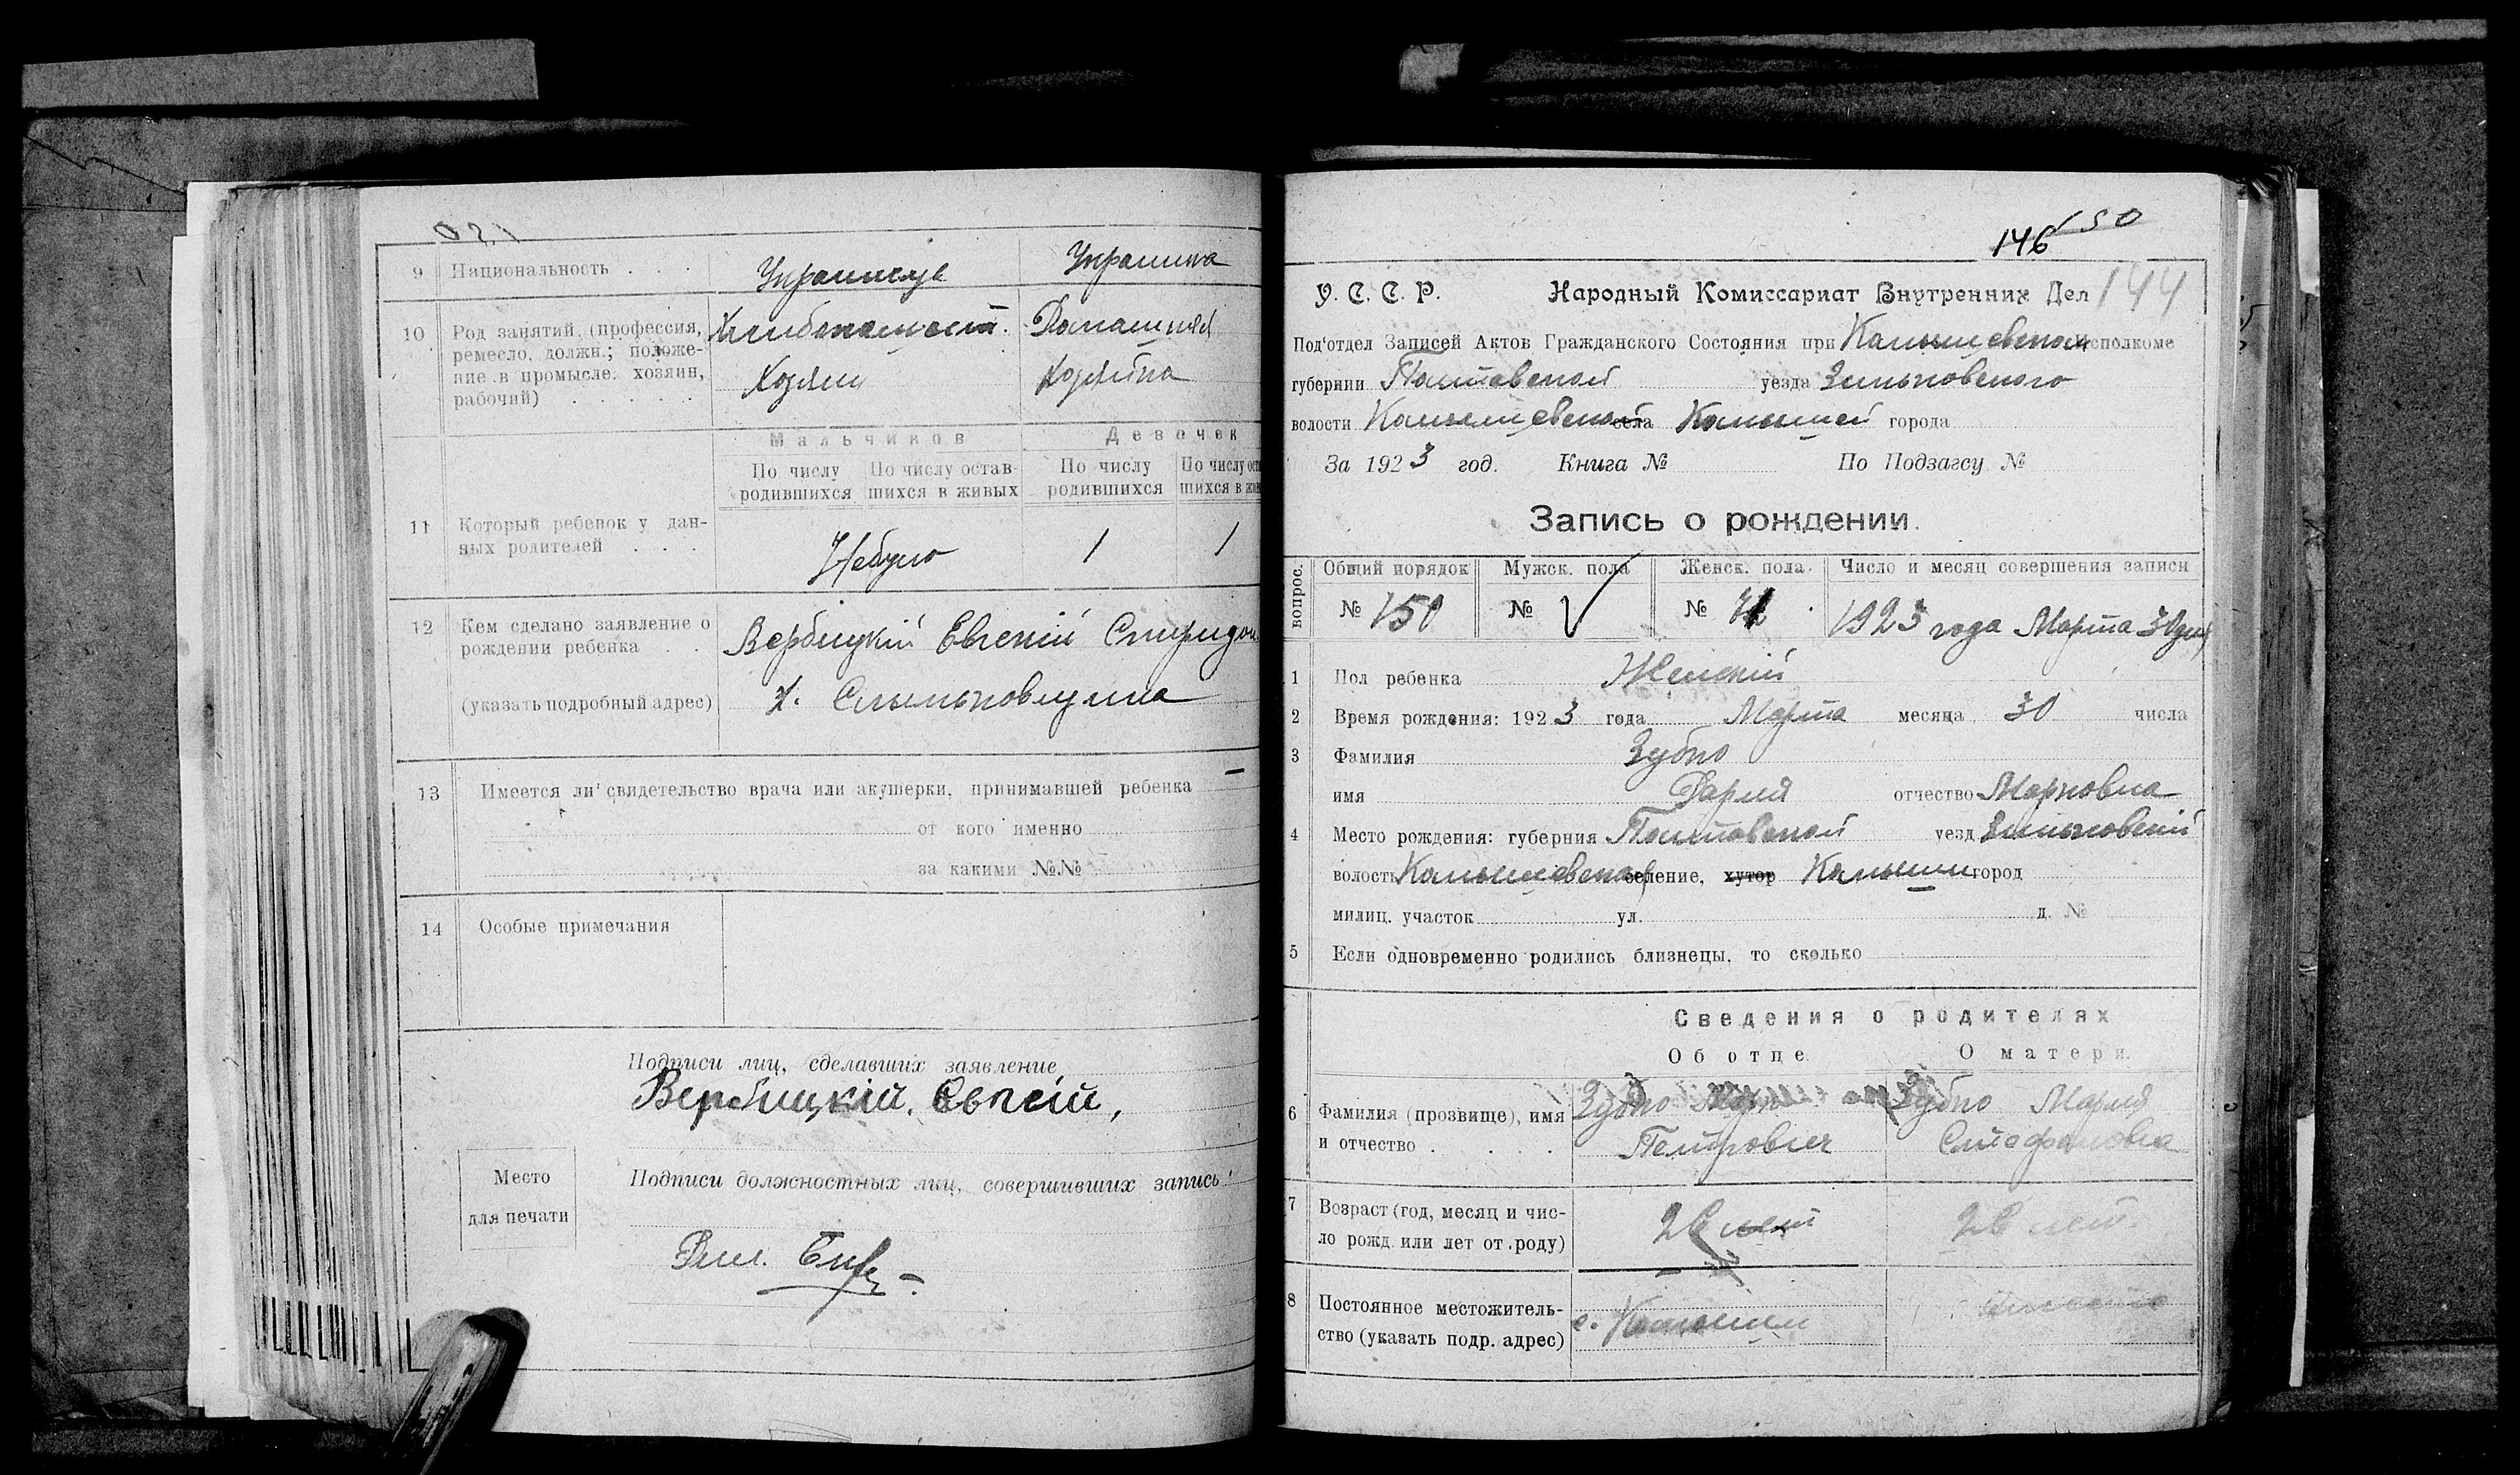 9 Национальность . . . Украинец Украинка
10 Род занятий, (профессия, ремесло, должн.; положе-
ние в промысле: хозяин, рабочий) . . . . . Хлебопашест. Домашняя
Хозяин Хозяйка
Мальчиков Девочек
По числу родившихся По числу остав-
шихся в живых По числу родившихся По числу ост
шихся в жив
11 Который ребенок у дан-
ных родителей . . . Небуло 1 1
12 Кем сделано заявление о
рождении ребенка . . Вербицкій Евгеній Спиридон.
(указать подробный адрес) х.
13 Имеется ли свидетельство врача или акушерки, принимавшей ребенка —
от кого именно
за какими №№
14 Особые примечания
Подписи лиц, сделавших заявление
Вербицкій, Евгеній,
Место
для печати
Подписи должностных лиц, совершивших запись
150
146
У. С. С. Р. Народный Комиссариат Внутренних Дел 144
Под'отдел Записей Актов Гражданского Состояния при Камышевском исполкоме
губернии Полтавской уезда Зиньковского
волости Камышевской села Камышей города
За 1923 год. Книга № По Подзагсу №
Запись о рождении.
вопрос. Общий порядок Мужск. пола Женск. пола. Число и месяц совершения записи
№ 150 № V № 1923 года Марта 30 дня
1 Пол ребенка Женскій
2 Время рождения: 1923 года Марта месяца 30 числа
3 Фамилия Зубко
имя Дария отчество Марковна
4 Место рождения: губерния Полтавской уезд Зиньковскій
волость Камышевская селение, хутор Камыши город
милиц. участок ул. д. №
5 Если одновременно родились близнецы, то сколько
Сведения о родителях
Об отце. О матери.
6 Фамилия (прозвище), имя Зубко Марко Зубко Мария
и отчество . . . . Петрович Стефановна
7 Возраст (год, месяц и чис-
ло рожд. или лет от роду) 26 лет 26 лет.
8 Постоянное местожитель-
ство (указать подр. адрес) с. Камыши